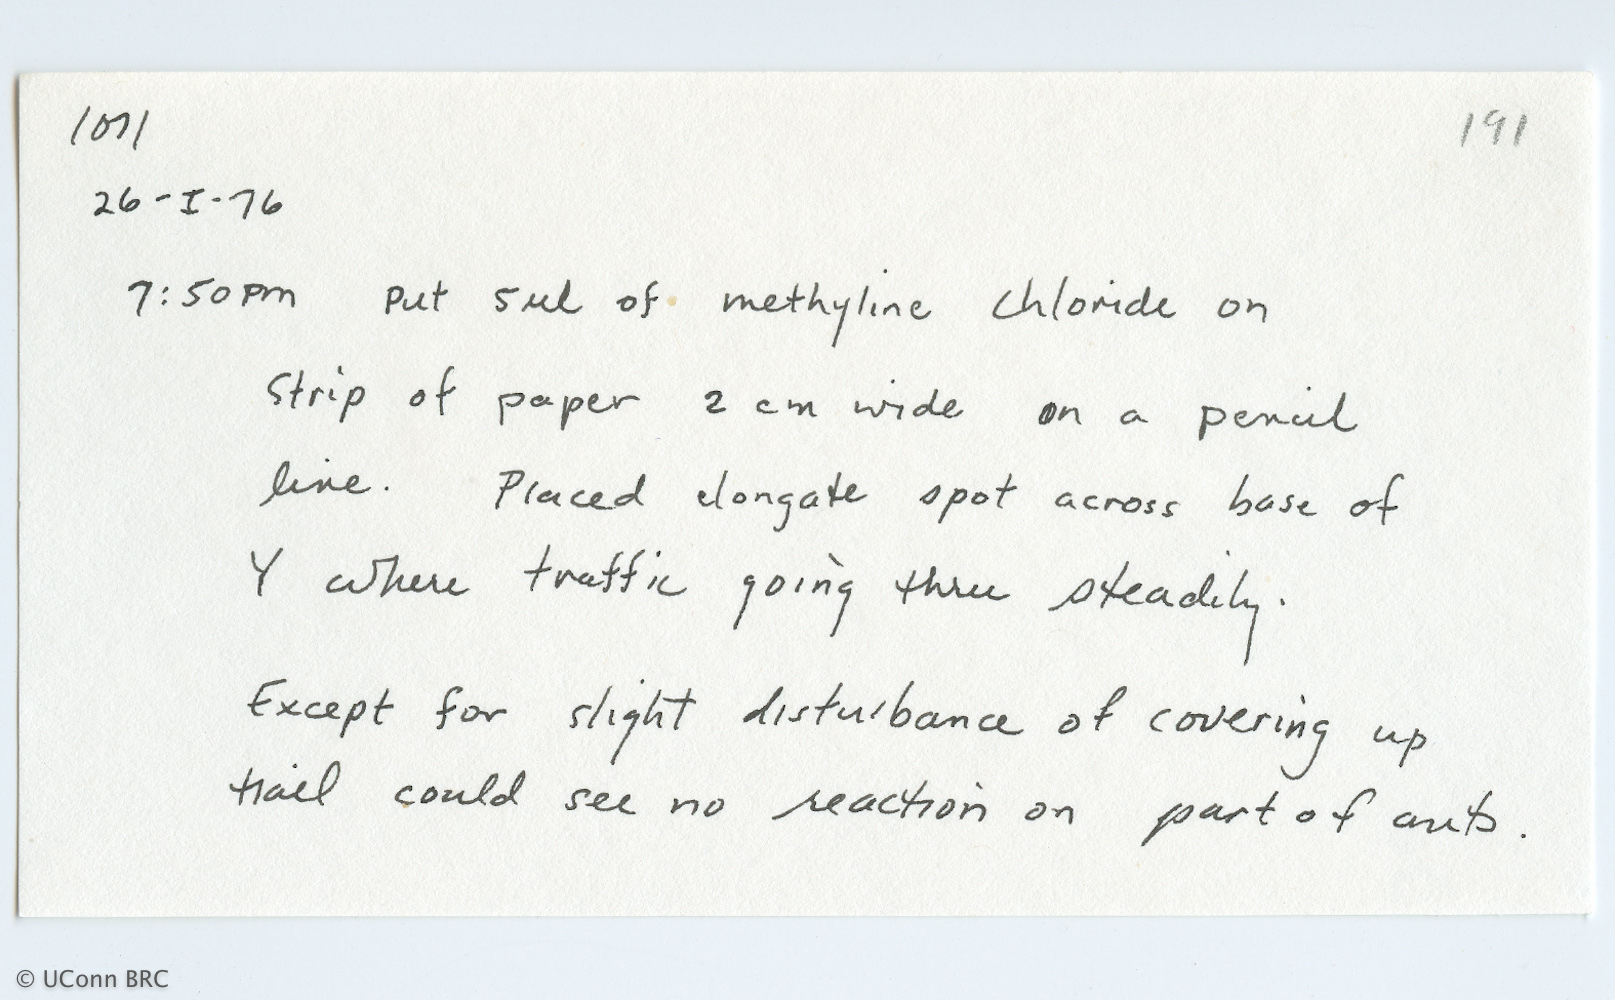 1071 191
26-I-76
7:50pm put 5ul of methyline chloride on
strip of paper 2 cm wide on a pencil
line. Placed elongate spot across base of
Y where traffic going thru steadily.
Except for slight disturbance of covering up
trail could see no reaction on part of ants.
© UConn BRC